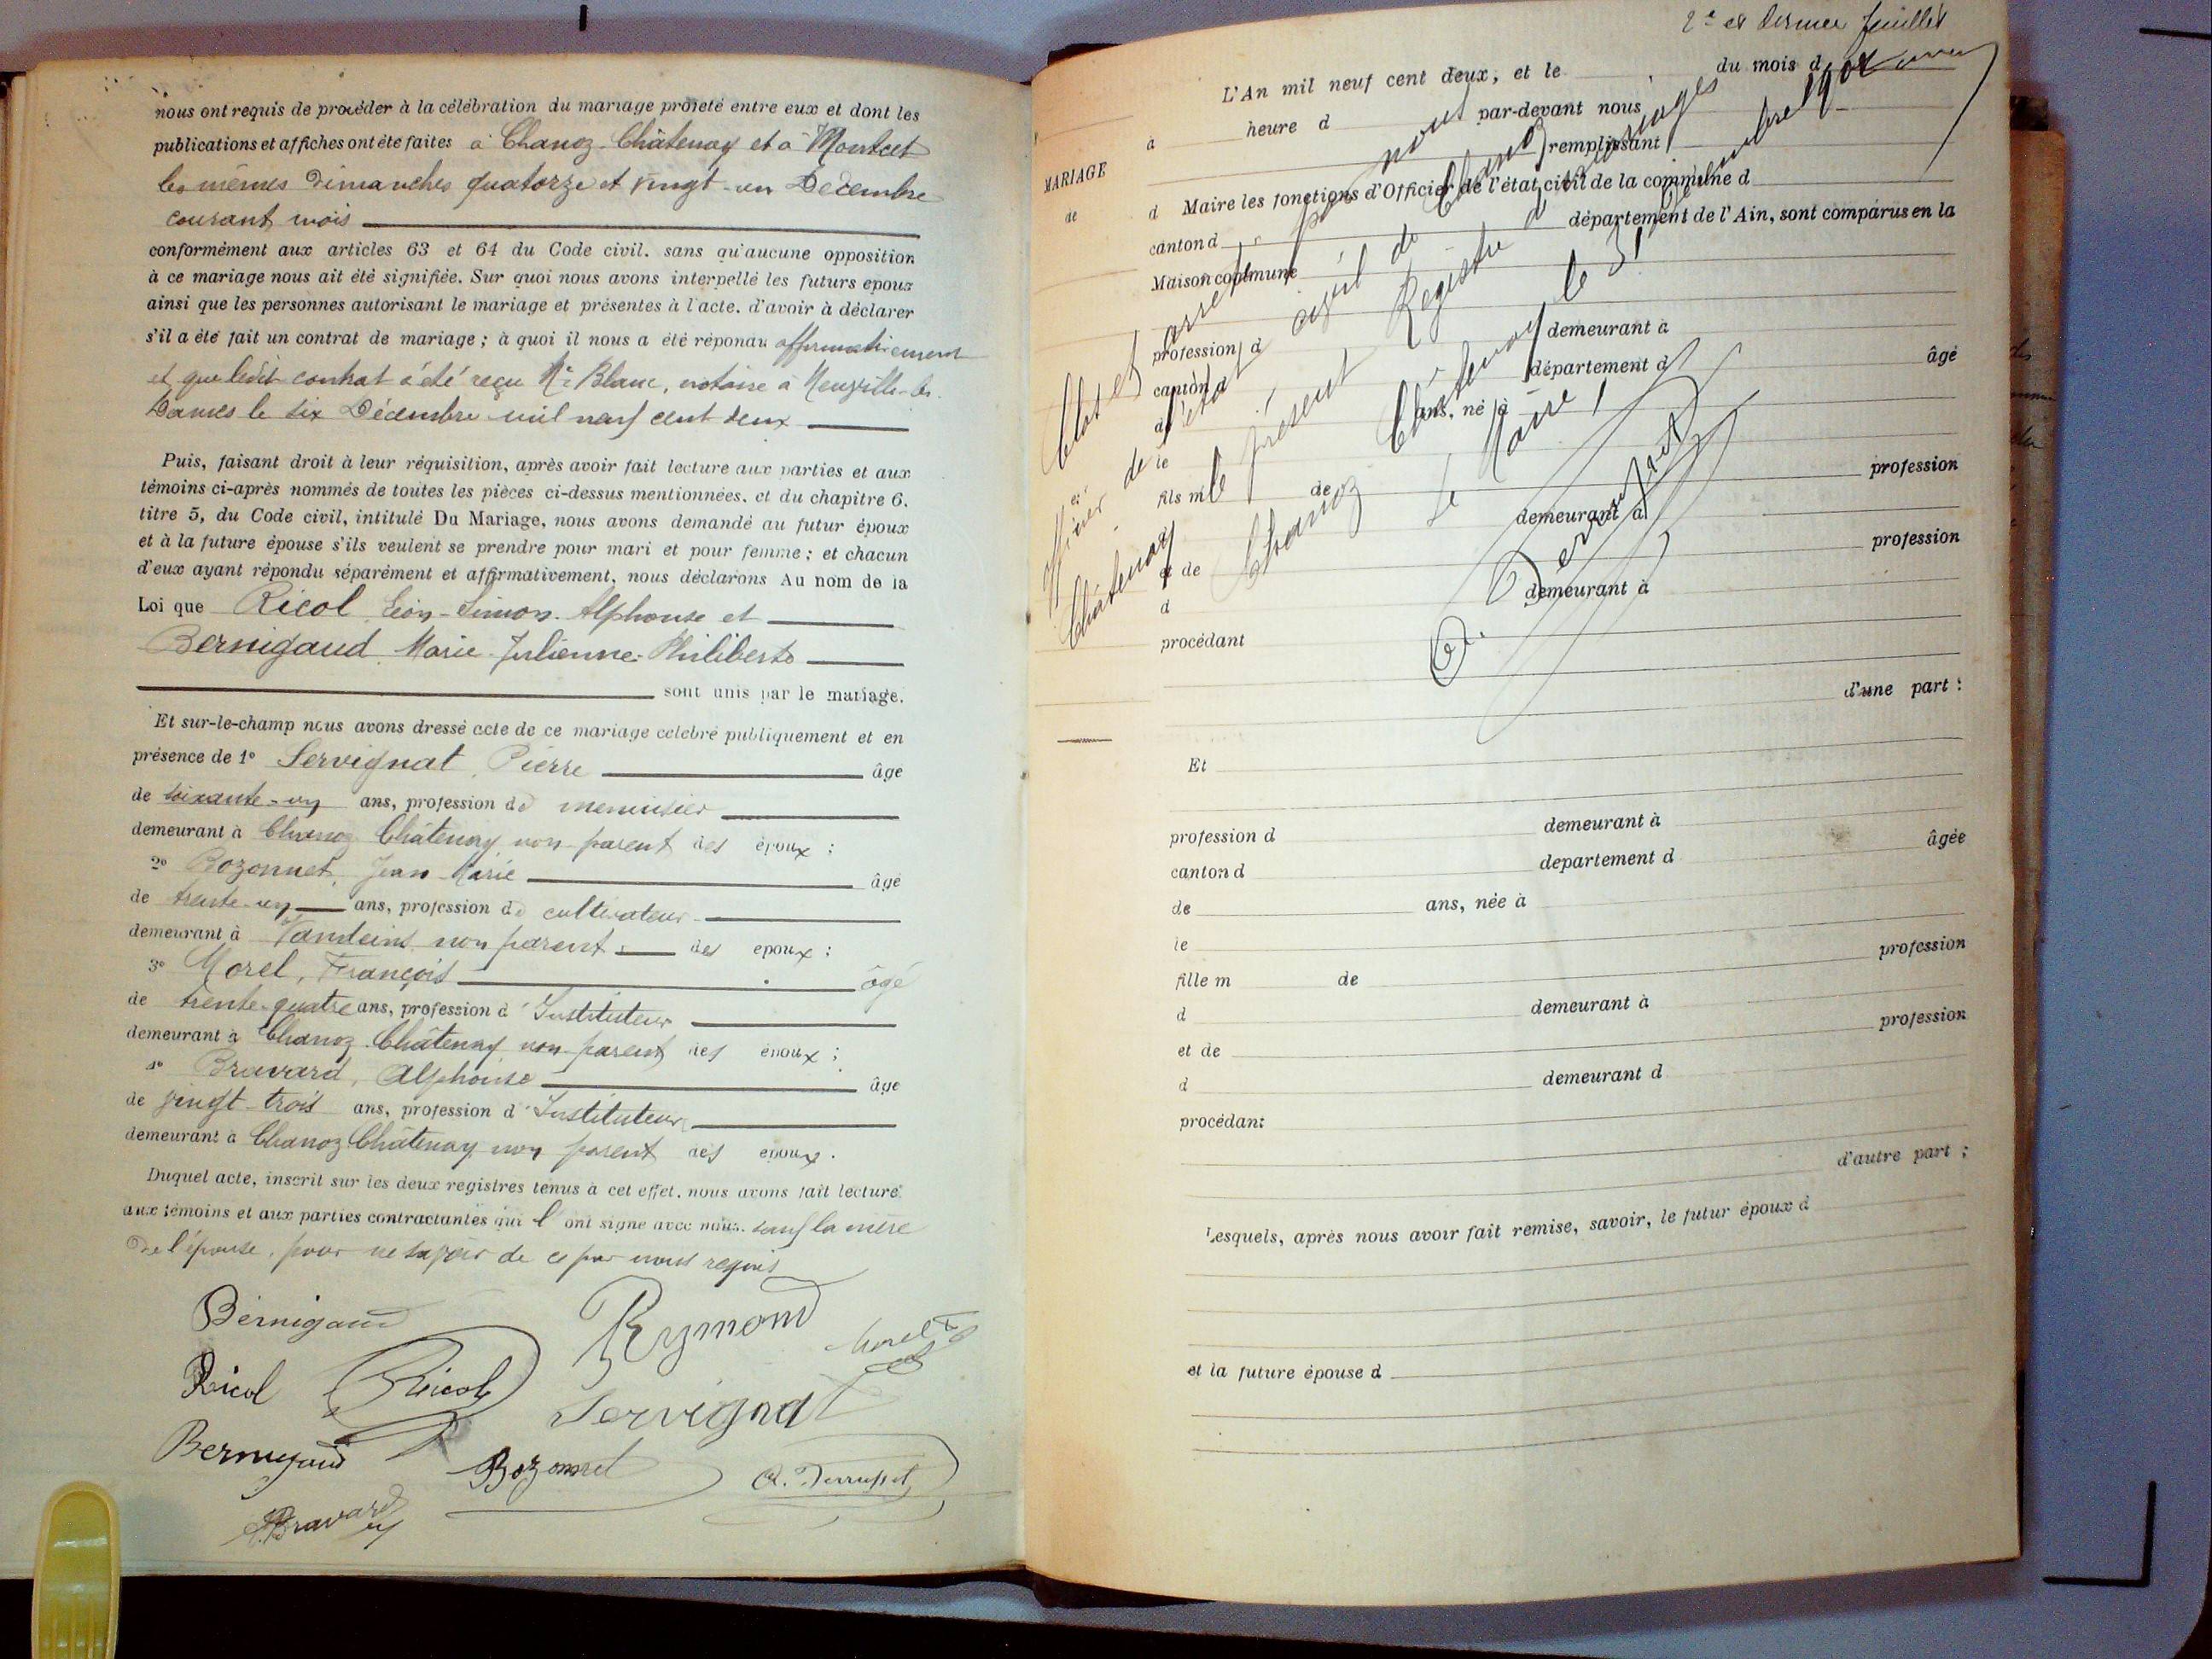 nous ont requis de procéder à la célébration du mariage projeté entre eux et dont les
publications et affiches ont été faites à Chanoz-Châtenay et à Montcet
les mêmes dimanches quatorze et vingt-un Décembre
courant mois
conformément aux articles 63 et 64 du Code civil, sans qu'aucune opposition
à ce mariage nous ait été signifiée. Sur quoi nous avons interpellé les futurs epoux
ainsi que les personnes autorisant le mariage et présentes à l'acte, d'avoir à déclarer
s'il a été fait un contrat de mariage ; à quoi il nous a été répondu affirmativement
et que ledit contrat a été reçu Me Blanc, notaire à Neuville-les-
Dames le six Décembre mil neuf cent deux
Puis, faisant droit à leur réquisition, après avoir fait lecture aux parties et aux
témoins ci-après nommés de toutes les pièces ci-dessus mentionnées, et du chapitre 6,
titre 5, du Code civil, intitulé Du Mariage, nous avons demandé au futur époux
et à la future épouse s'ils veulent se prendre pour mari et pour femme ; et chacun
d'eux ayant répondu séparément et affirmativement, nous déclarons Au nom de la
Loi que Ricol Léon-Simon-Alphonse et
Bernigaud Marie-Julienne-Philiberte
sont unis par le mariage.
Et sur-le-champ nous avons dressé acte de ce mariage célébré publiquement et en
présence de 1º Servignat, Pierre âgé
de soixante-un ans, profession de menuisier
demeurant à Chanoz-Châtenay non parent des époux ;
2º Bozonnet, Jean-Marie âgé
de trente-un ans, profession de cultivateur
demeurant à Vandeins non parent des epoux ;
3º Morel, François âgé
de trente-quatre ans, profession d'Instituteur
demeurant à Chanoz-Châtenay non parent des époux ;
4º Bravard, Alphonse âgé
de vingt-trois ans, profession d'Instituteur
demeurant à Chanoz-Châtenay non parent des epoux.
Duquel acte, inscrit sur les deux registres tenus à cet effet, nous avons fait lecture
aux témoins et aux parties contractantes qui l'ont signé avec nous, sauf la mère
de l'épouse, pour ne savoir de ce par nous requis
Bernigaud
Rymond
Morel F
Ricol
Ricol
Servignat
Bernigaud
Bozonnet
A. Bravard
2e et dernier feuillet
L'An mil neuf cent deux, et le du mois d
à heure d par-devant nous
remplissant
MARIAGE
de
d Maire les fonctions d'Officier de l'état civil de la commune d
canton d département de l'Ain, sont comparus en la
Maison commune
profession d demeurant à
canton d département d âgé
de ans, né à
le
et
fils m de profession
d demeurant à
et de profession
d demeurant à
procédant
d'une part ;
Clos et arrêté par nous
officier de l'état civil de Chanoz
Châtenay le présent Registre d mariages
Chanoz Châtenay le 31 décembre 1902
Le Maire,
Et
profession d demeurant à
canton d departement d âgée
de ans, née à
le
fille m de profession
d demeurant à
et de profession
d demeurant d
procédant
d'autre part ;
Lesquels, après nous avoir fait remise, savoir, le futur époux d
et la future épouse d